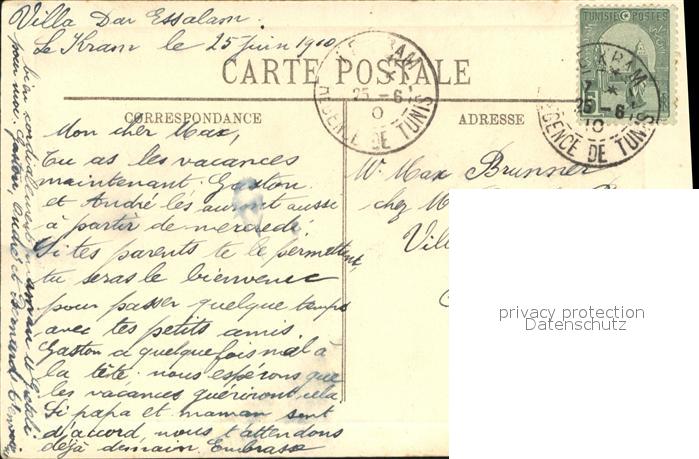 Villa Dar Essalam.
Le Kram le 25 Juin 1910
CARTE POSTALE
TUNISIE POSTES
LE KRAM
25-6
10
REGENCE DE TUNIS
LE KRAM
25-6
10
REGENCE DE TUNIS
CORRESPONDANCE
ADRESSE
Mon cher Max,
Tu as les vacances
maintenant. Gaston
et André les auront aussi
à partir de mercredi.
Si tes parents te le permettent,
tu seras le bienvenu
pour passer quelque temps
avec tes petits amis.
Gaston a quelquefois mal à
la tête. nous espérons que
les vacances guériront cela
Si papa et maman sont
d'accord, nous t'attendons
déjà demain. Embrasse
bien cordialement maman
pour moi. Gaston, André et Bernard
Mr Max Brunner
chez M
Vill
privacy protection
Datenschutz